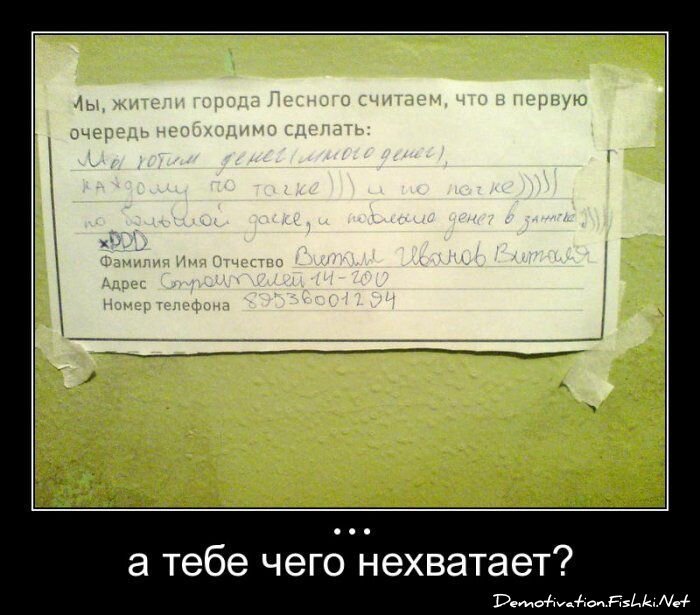 Мы, жители города Лесного считаем, что в первую
очередь необходимо сделать:
Мы хотим денег (много денег),
каждому по тачке))) и по пачке)))))
по большой даске, и побольше денег в
xDDD
Фамилия Имя Отчество Виталя Иванов Виталя
Адрес Строителей 14-200
Номер телефона 89536001294
...
а тебе чего нехватает?
Demotivation.Fishki.Net